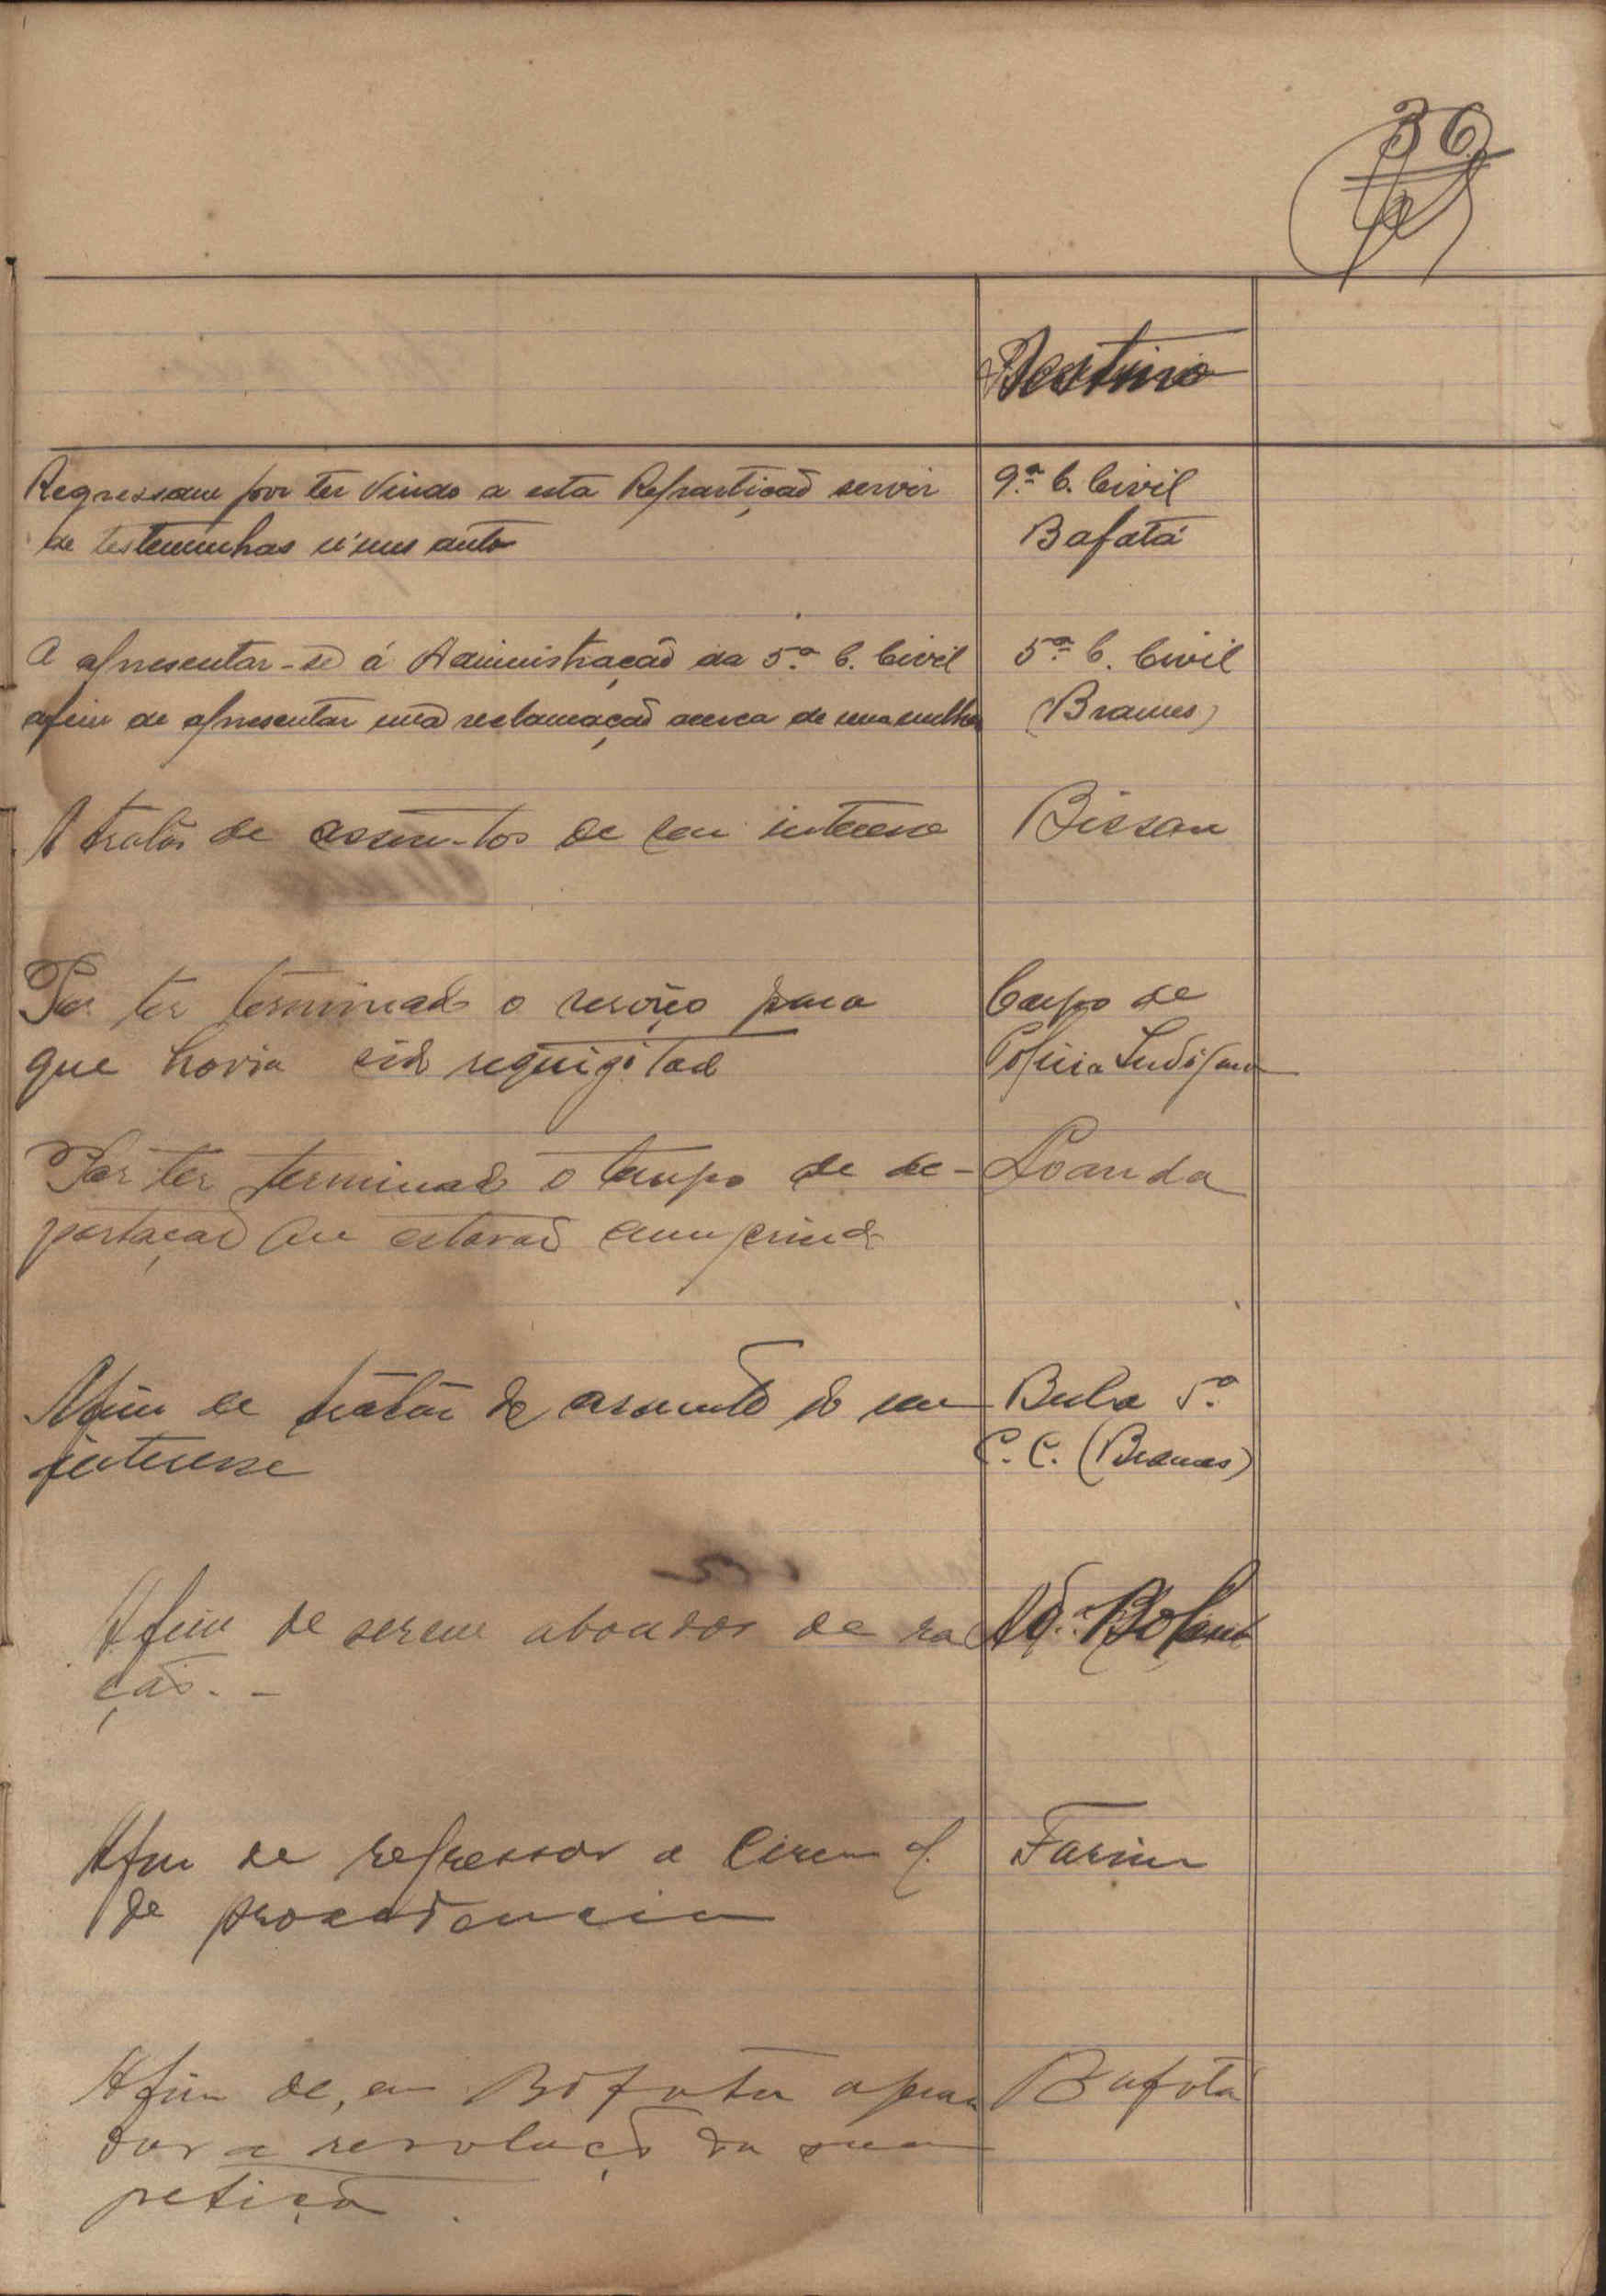 36
Destino
Regressam por ter vindo a esta Repartição servir
de testemunhas n'um auto
9.ª C. Civil
Bafatá
A apresentar-se á Administração da 5.ª C. Civil
afim de apresentar uma reclamação acerca de uma mulher
5.ª C. Civil
(Brames)
A tratar de assuntos de seu interesse
Bissau
Por ter terminado o serviço para
que havia sido requigitado
Corpo de
Policia Indigena
Por ter terminado o tempo de de-
portação que estavão cumprindo
Loanda
Afim de tratar de assunto do seu
interesse
Bula 5.ª
C. C. (Brames)
Afim de serem abonados de ra
ção. -
Afim de regressar a Circum
de procedencia
Farim
Afim de, em Bafata aguar
dar a resolução da sua
petição.
Bafatá